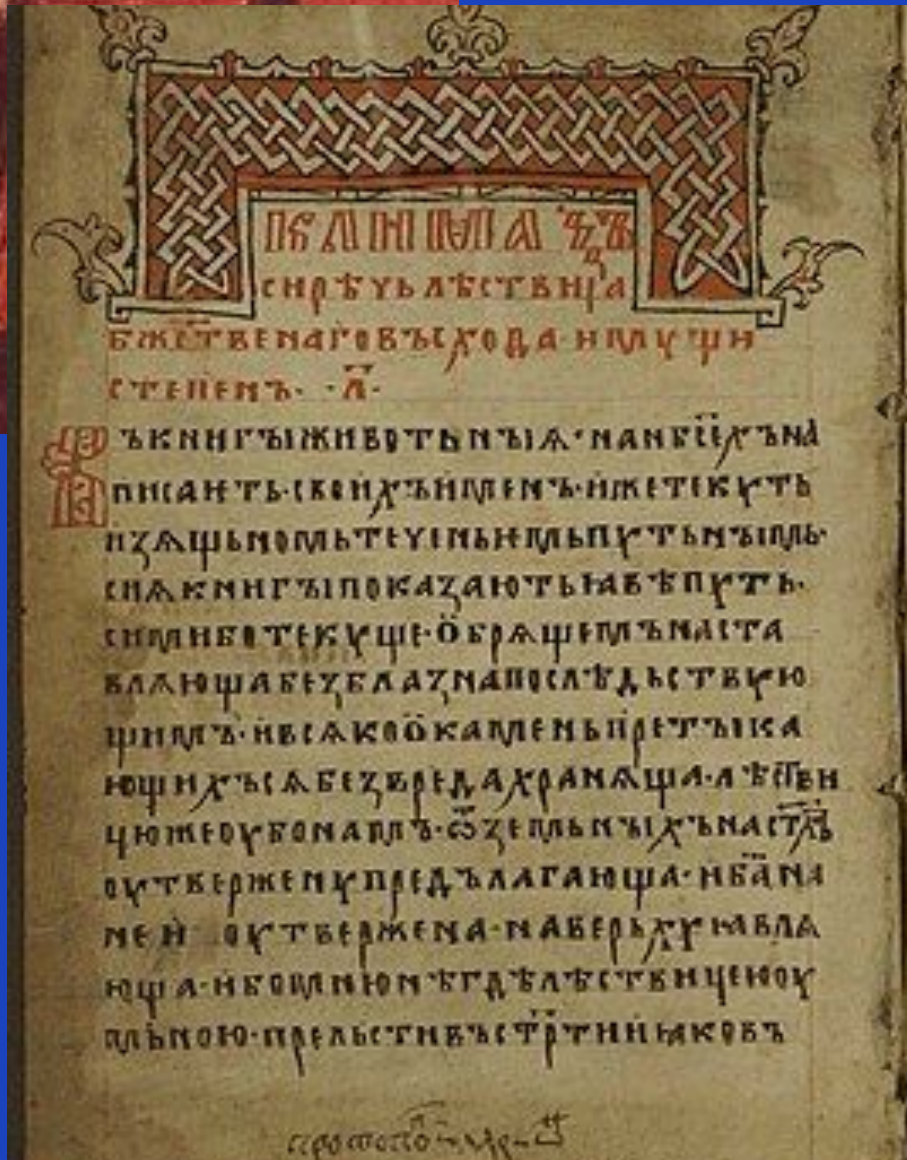 сирѣчь лѣствица
бжⷭ҇твенаго въсхода имꙋщи
степенъ · л҃ ·
Въ книгы животьныꙗ · наибⷭ҇ѣхъ на
писанть · своихъ именъ · иже текꙋть
изѧщьномь теченьиемь пꙋтьнымь ·
сиѧ книгы показають ꙗвѣ пꙋть ·
сими бо текꙋще · обрѧщемъ наста
влѧюща безблазна послѣдьствꙋю
щимъ · и всѧко о камень претыка
ющихъсѧ без вреда хранѧща · лѣⷭ҇тви
цю же оубо намъ · ѿ земьныхъ на ст҃хъ
оутверженꙋ предълагающа · и б҃а на
ней оутвержена · наверьхꙋ ꙗвлѧ
юща · ибо мню нѣгдѣ лѣствицею оу
мьною · прельстивъ стрⷭ҇ти иꙗковъ